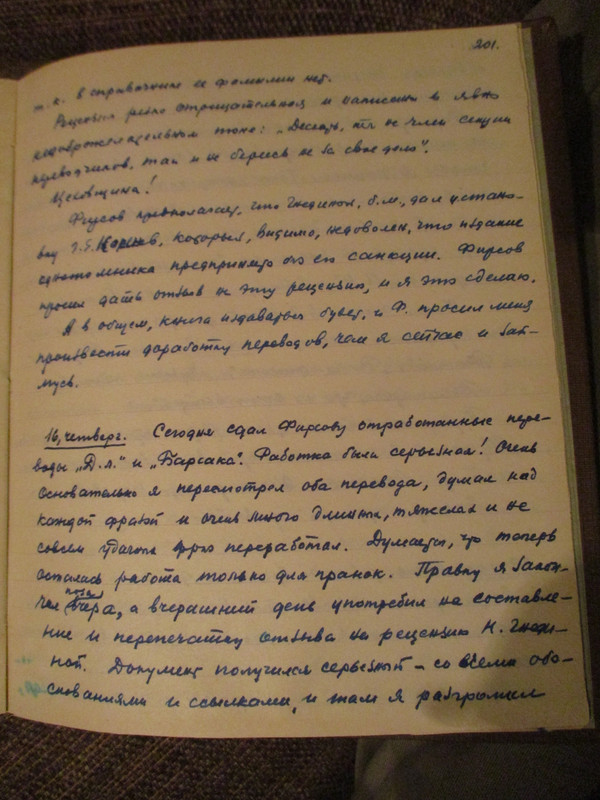 201.
т.к. в справочнике ее фамилии нет.
Рецензия резко отрицательная и написана в явно
недоброжелательном тоне: „Дескать, ты не член секции
переводчиков, так и не берись не за свое дело".
Цеховщина!
Фирсов предполагает, что Гнединой, б.м., дал установ-
ку, который, видимо, недоволен, что издание
однотомника предпринято без его санкции. Фирсов
просил дать отзыв на эту рецензию, и я это сделаю.
А в общем, книга издаваться будет, и Ф. просил меня
произвести доработку переводов, чем я сейчас и зай-
мусь.
16, четверг. Сегодня сдал Фирсову отработанные пере-
воды „Д.л." и „Барсака". Работка была серьезная! Очень
основательно я пересмотрел оба перевода, думал над
каждой фразой и очень много длинных, тяжелых и не
совсем удачных фраз переработал. Думается, что теперь
осталась работа только для гранок. Правку я закон-
чил позавчера, а вчерашний день употребил на составле-
ние и перепечатку отзыва на рецензию Н. Гнеди-
ной. Документ получился серьезный – со всеми обо-
снованиями и ссылками, и там я разгромил